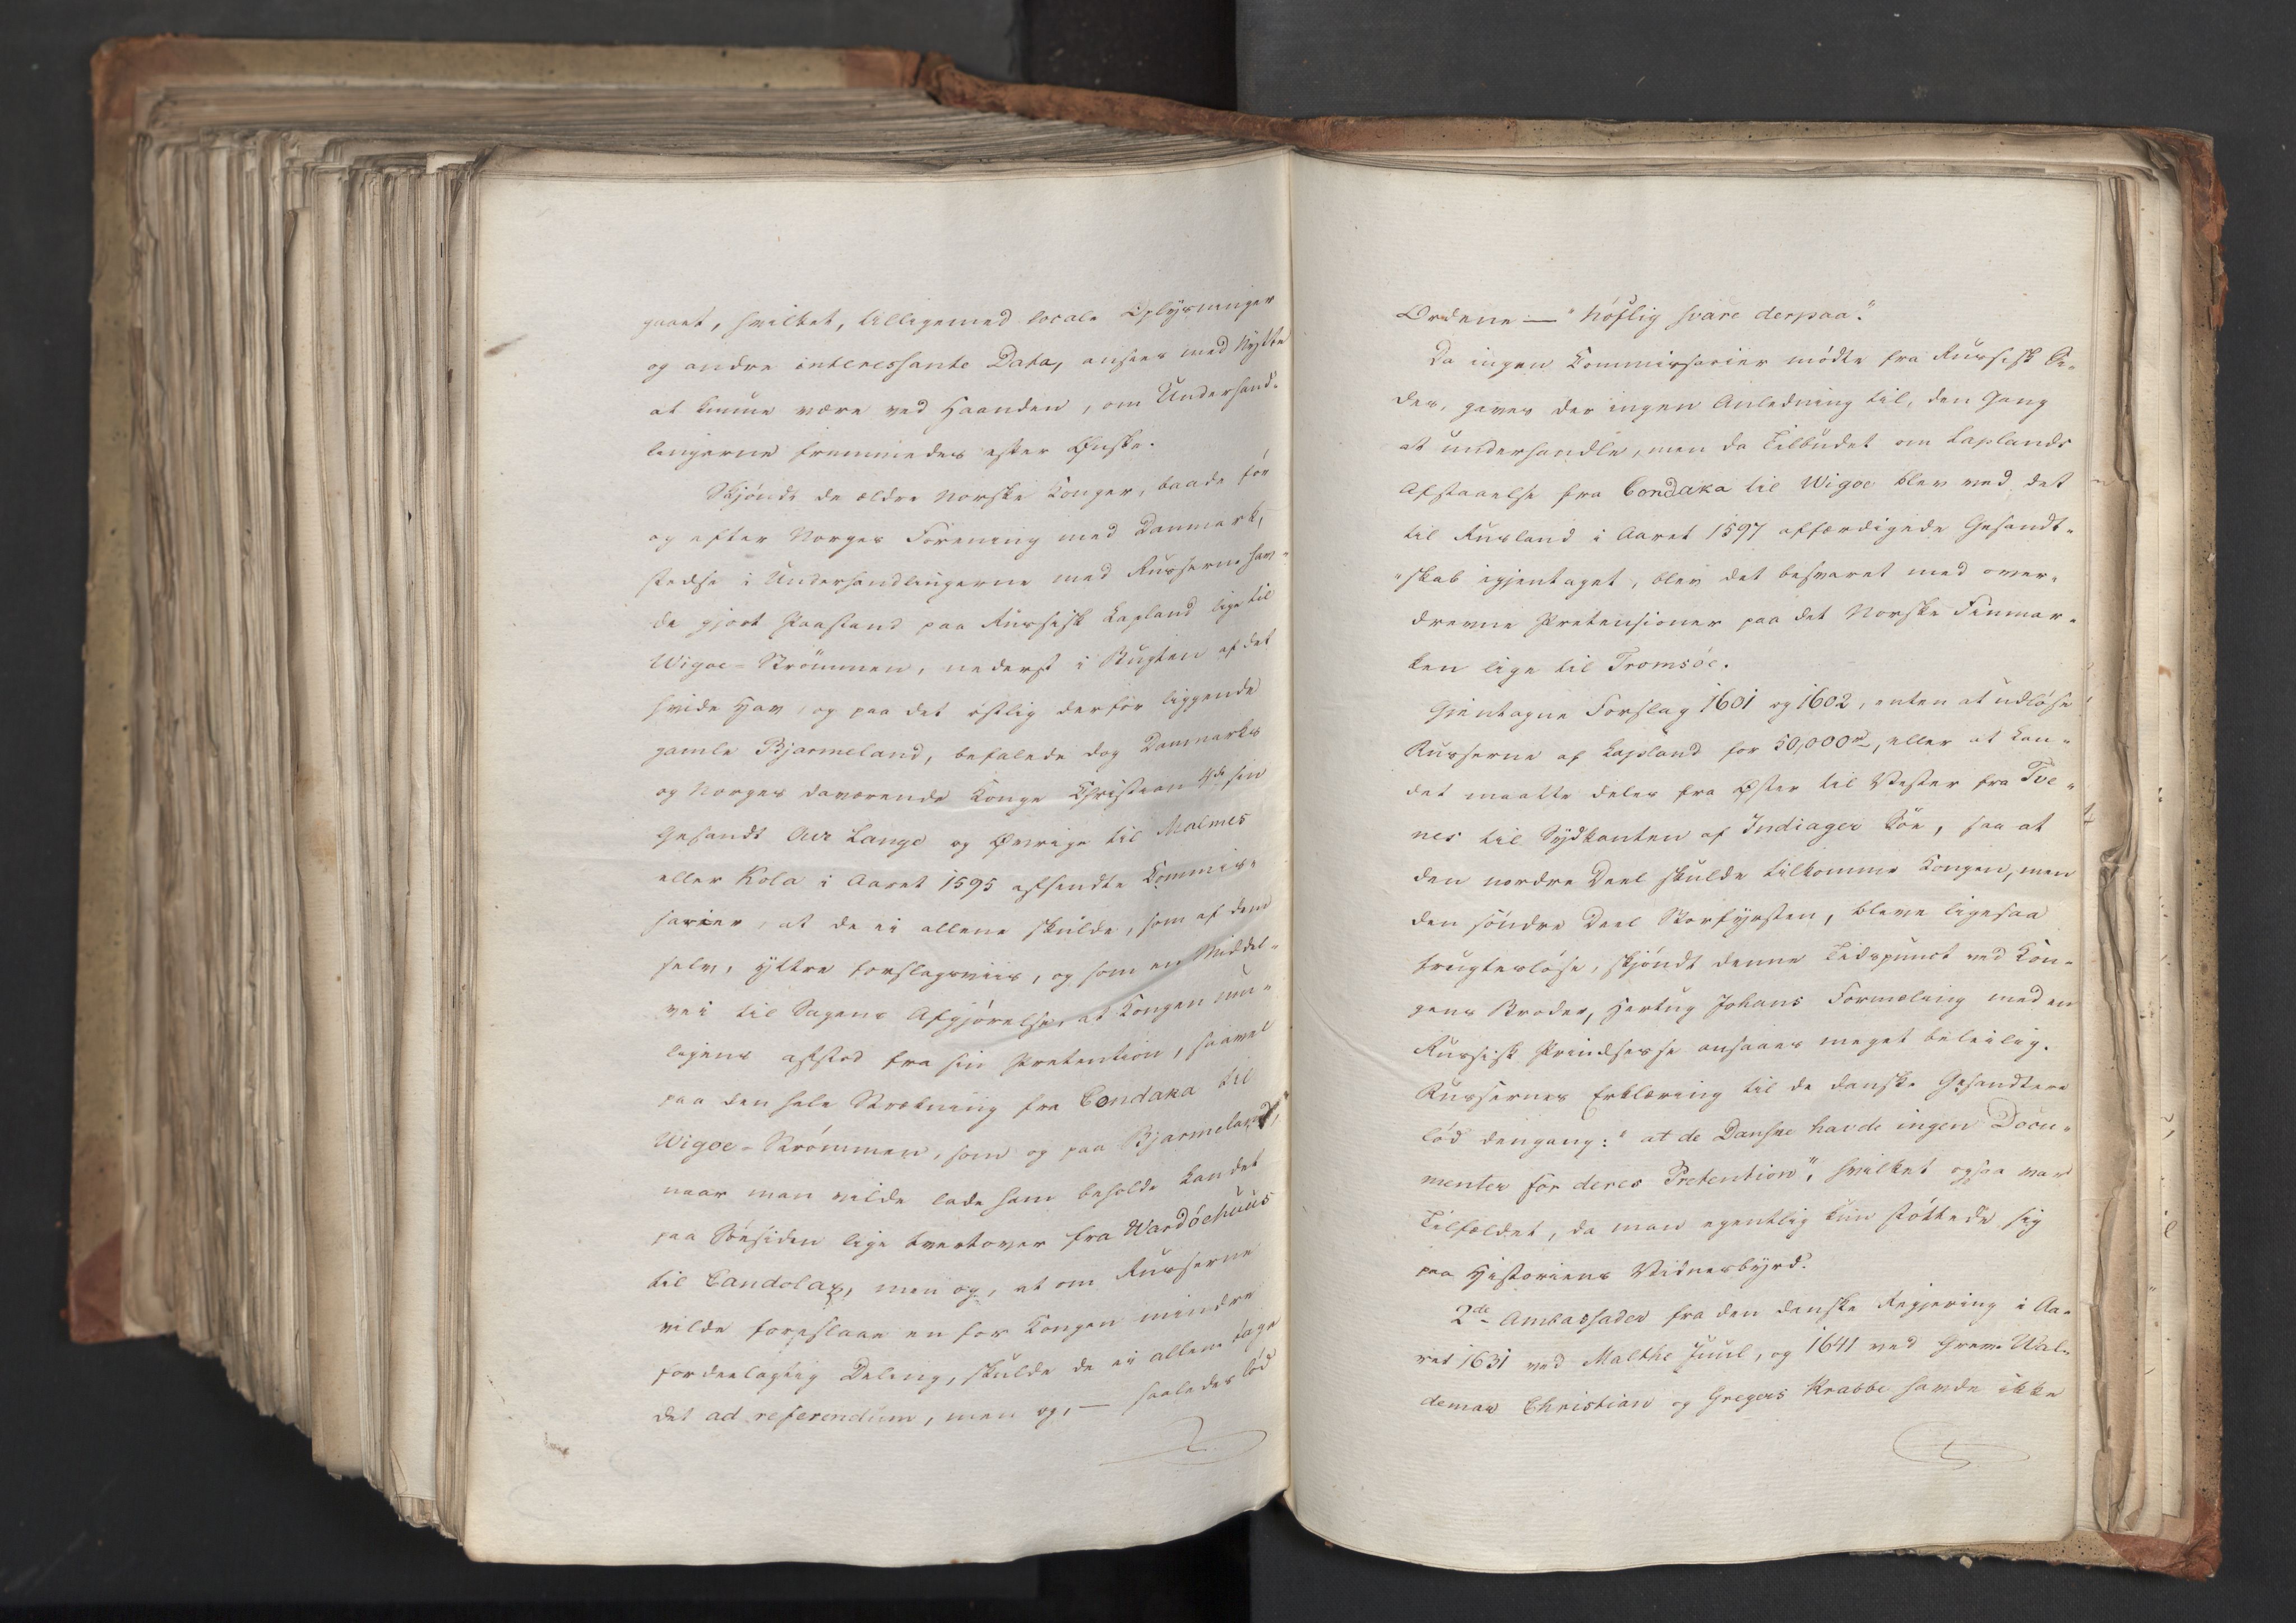 gaaet, hvilket, tilligemed locale Oplysninger
og andre interessante Data, ansees med Nytte
at kunne være ved Haanden, om Underhand-
lingerne fremmedes efter Ønske.
Skjøndt de ældre Norske Konger, baade før
og efter Norges Forening med Danmark,
stedse i Underhandlingerne med Russerne hav-
de gjort Paastand paa Russisk Lapland lige til
Wigoe-Strømmen, nederst i Bugten af det
hvide Hav, og paa det østlig derfor liggende
gamle Bjarmeland, befalede dog Danmarks
og Norges daværende Konge Christian 4de sin
Gesandt Aur Lange og Øvrige til Malmes
eller Kola i Aaret 1595 afsendte Kommis-
sarier, at de ei allene skulde, som af dem
selv, yttre forslagsviis, og som en Middel-
vei til Sagens Afgjørelse, at Kongen mu-
ligens afstod fra sin Pretention, saavel
paa den hele Strækning fra Condaka til
Wigoe-Strømmen, som og paa Bjarmeland,
naar man vilde lade ham beholde Landet
paa Søesiden lige tvertover fra Wardöehuus
til Candolax, men og, at om Russerne
vilde foreslaae en for Kongen mindre
fordeelagtig Deling, skulde de ei allene tage
det ad referendum, men og, — saaledes lød
Ordene — "höflig svare derpaa."
Da ingen Commissarier mødte fra Russisk Si-
des, gaves der ingen Anledning til, den Gang
at underhandle, men da Tilbudet om Laplands
Afstaaelse fra Condaka til Wigoe blev ved det
til Rusland i Aaret 1597 affærdigede Gesandt-
"skab igjentaget, blev det besvaret med over-
drevne Pretensioner paa det Norske Finmar-
ken lige til Tromsöe.
Gjentagne Forslag 1601 og 1602, enten at udløse
Russerne af Lapland for 50,000 rd, eller at Lan-
det maatte deles fra Øster til Vester fra Tve-
nes til Sydkanten af Indiager Søe, saa at
den nordre Deel skulde tilkomme Kongen, men
den söndre Deel Storfyrsten, bleve ligesaa
frugtesløse, skjøndt denne Tidspunct ved Kon-
gens Broder, Hertug Johans Formæling med en
Russisk Prindsesse ansaaes meget beleilig.
Russernes Erklæring til de danske Gesandtere
lød dengang: "at de Danske havde ingen Docu-
menter for deres Pretention", hvilket ogsaa var
Tilfældet, da man egentlig kun støttede sig
paa Historiens Vidnesbyrd.
2de Ambassader fra den danske Regjering i Aa-
ret 1631 ved Malthe Juul, og 1641 ved Greve Wal-
demar Christian og Gregers Krabbe havde ikke